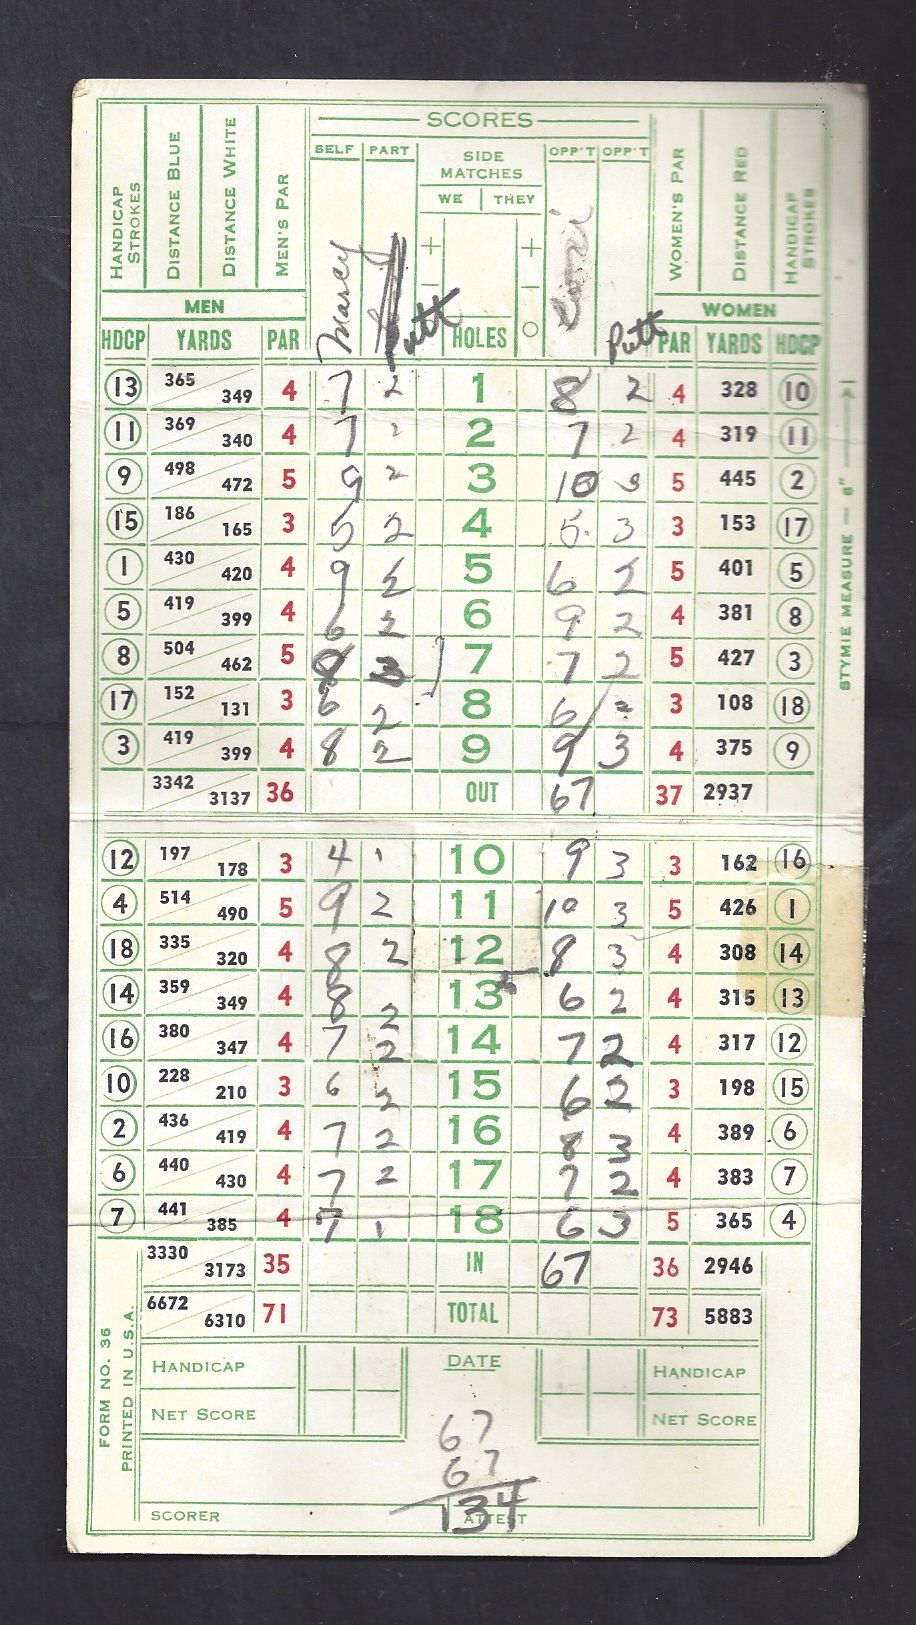 SCORES
HANDICAP STROKES DISTANCE BLUE DISTANCE WHITE MEN'S PAR SELF PART SIDE MATCHES OPP'T OPP'T WOMEN'S PAR DISTANCE RED HANDICAP STROKES
WE THEY
+ +
- -
Putt Putt
MEN WOMEN
HDCP YARDS PAR HOLES O PAR YARDS HDCP
13 365 349 4 7 2 1 8 2 4 328 10
11 369 340 4 7 2 2 7 2 4 319 11
9 498 472 5 9 2 3 10 3 5 445 2
15 186 165 3 5 2 4 5 3 3 153 17
1 430 420 4 9 2 5 6 2 5 401 5
5 419 399 4 6 2 6 9 2 4 381 8
8 504 462 5 8 3 7 7 2 5 427 3
17 152 131 3 6 2 8 6 2 3 108 18
3 419 399 4 8 2 9 9 3 4 375 9
3342 3137 36 OUT 67 37 2937
12 197 178 3 4 1 10 9 3 3 162 16
4 514 490 5 9 2 11 10 3 5 426 1
18 335 320 4 8 2 12 8 3 4 308 14
14 359 349 4 8 2 13 6 2 4 315 13
16 380 347 4 7 2 14 7 2 4 317 12
10 228 210 3 6 2 15 6 2 3 198 15
2 436 419 4 7 2 16 8 3 4 389 6
6 440 430 4 7 2 17 7 2 4 383 7
7 441 385 4 7 1 18 6 3 5 365 4
3330 3173 35 IN 67 36 2946
6672 6310 71 TOTAL 73 5883
HANDICAP DATE HANDICAP
NET SCORE NET SCORE
67
67
134
SCORER ATTEST
FORM NO. 36
PRINTED IN U.S.A.
STYMIE MEASURE — 6"